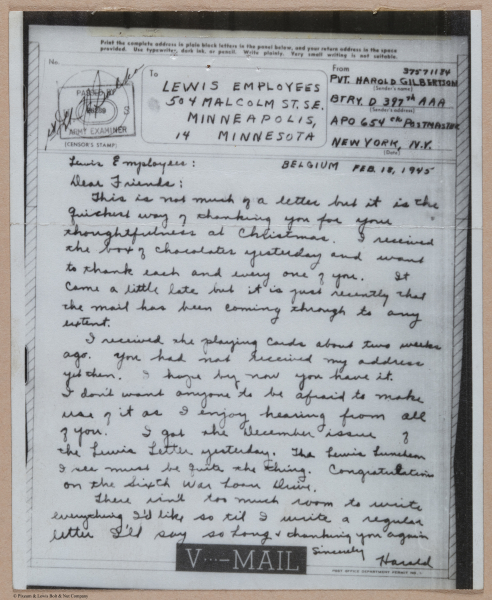 Print the complete address in plain block letters in the panel below, and your return address in the space
provided. Use typewriter, dark ink, or pencil. Write plainly. Very small writing is not suitable.
No.
PASSED BY
ARMY EXAMINER
(CENSOR'S STAMP)
To
LEWIS EMPLOYEES
504 MALCOLM ST. S.E.
MINNEAPOLIS,
14 MINNESOTA
From
37571184
PVT. HAROLD GILBERTSON
(Sender's name)
BTRY. D 397TH AAA
(Sender's address)
APO 654 C/O POSTMASTER
NEW YORK, N.Y.
(Date)
BELGIUM FEB. 18, 1945
Lewis Employees:
Dear Friends:
This is not much of a letter but it is the
quickest way of thanking you for your
thoughtfulness at Christmas. I received
the box of chocolates yesterday and want
to thank each and every one of you. It
came a little late but it is just recently that
the mail has been coming through to any
extent.
I received the playing cards about two weeks
ago. You had not received my address
yet then. I hope by now you have it.
I don't want anyone to be afraid to make
use of it as I enjoy hearing from all
of you. I got the December issue of
the Lewis Letter yesterday. The Lewis Luncheon
I see must be quite the thing. Congratulations
on the Sixth War Loan Drive.
There isn't too much room to write
everything I'd like so til I write a regular
letter I'll say so long & thanking you again
Sincerely
Harold
V···—MAIL
POST OFFICE DEPARTMENT PERMIT NO.
© Pleasants & Lewis Bolt & Nut Company